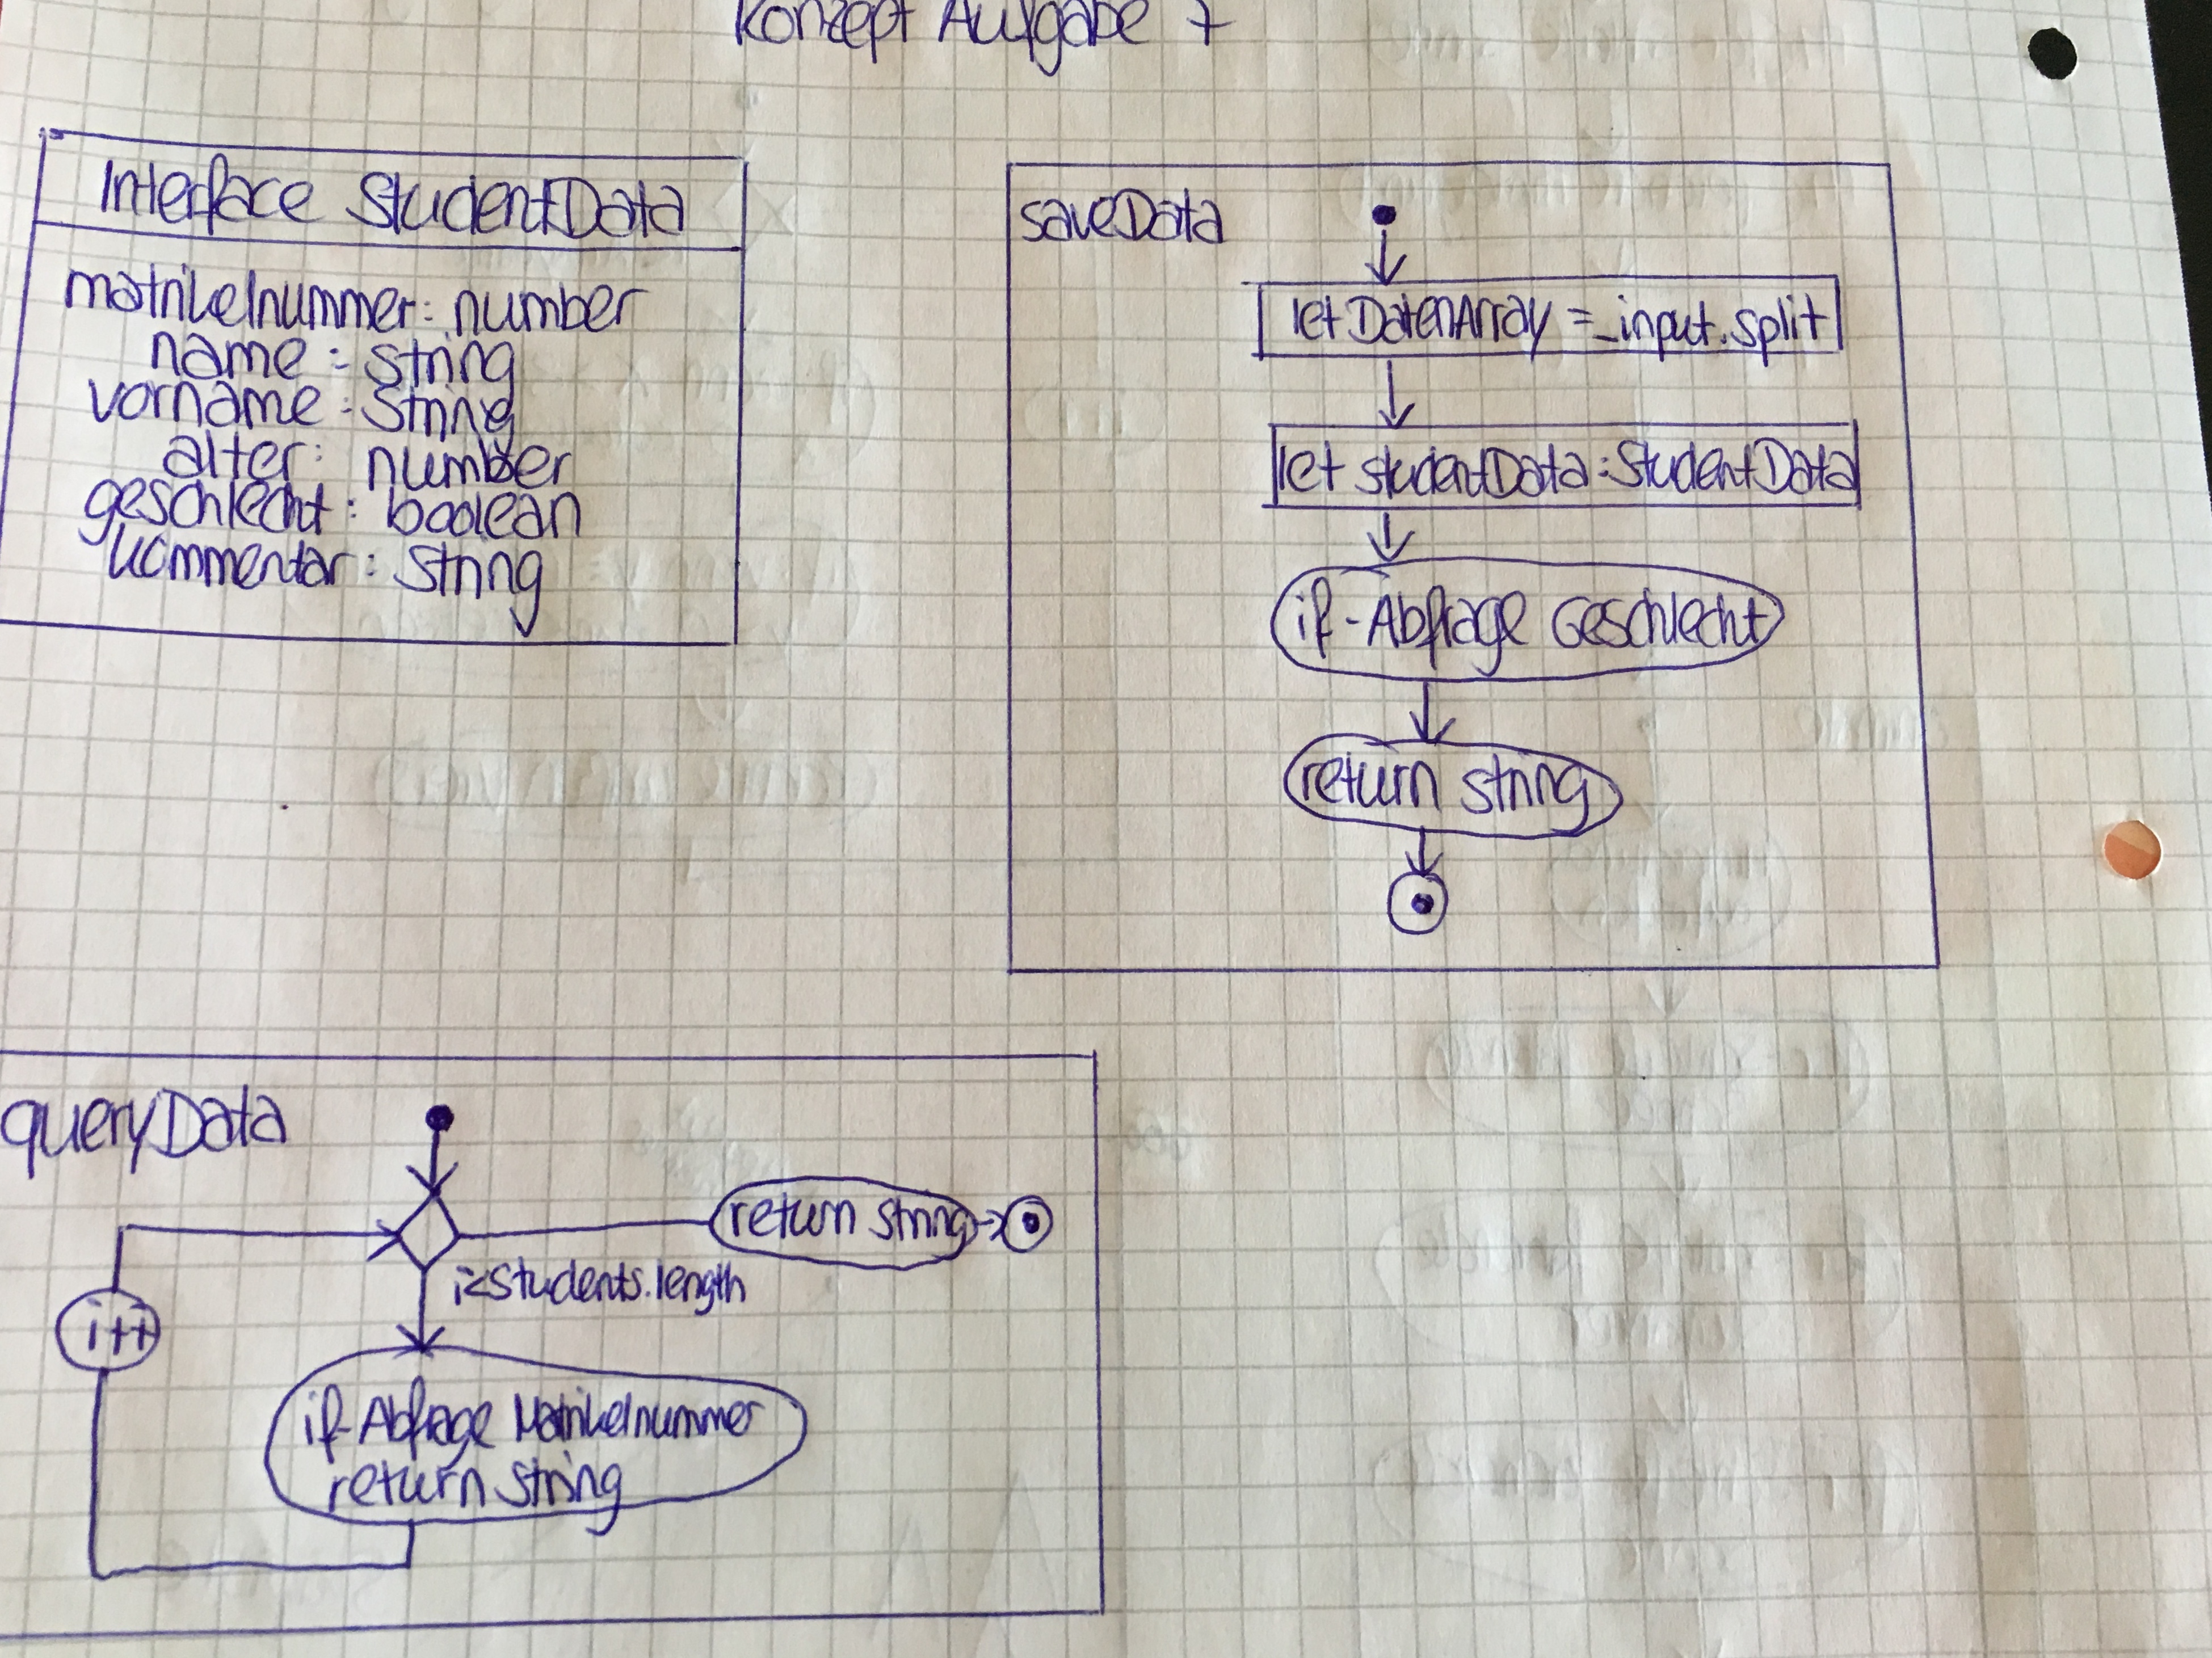 Konzept Aufgabe 7
Interface StudentData
matrikelnummer: number
name: string
vorname: string
alter: number
geschlecht: boolean
kommentar: string
saveData
let DatenArray = _input.split
let studentData: StudentData
if-Abfrage Geschlecht
return string
queryData
return string
i<students.length
i++
if-Abfrage Matrikelnummer
return string